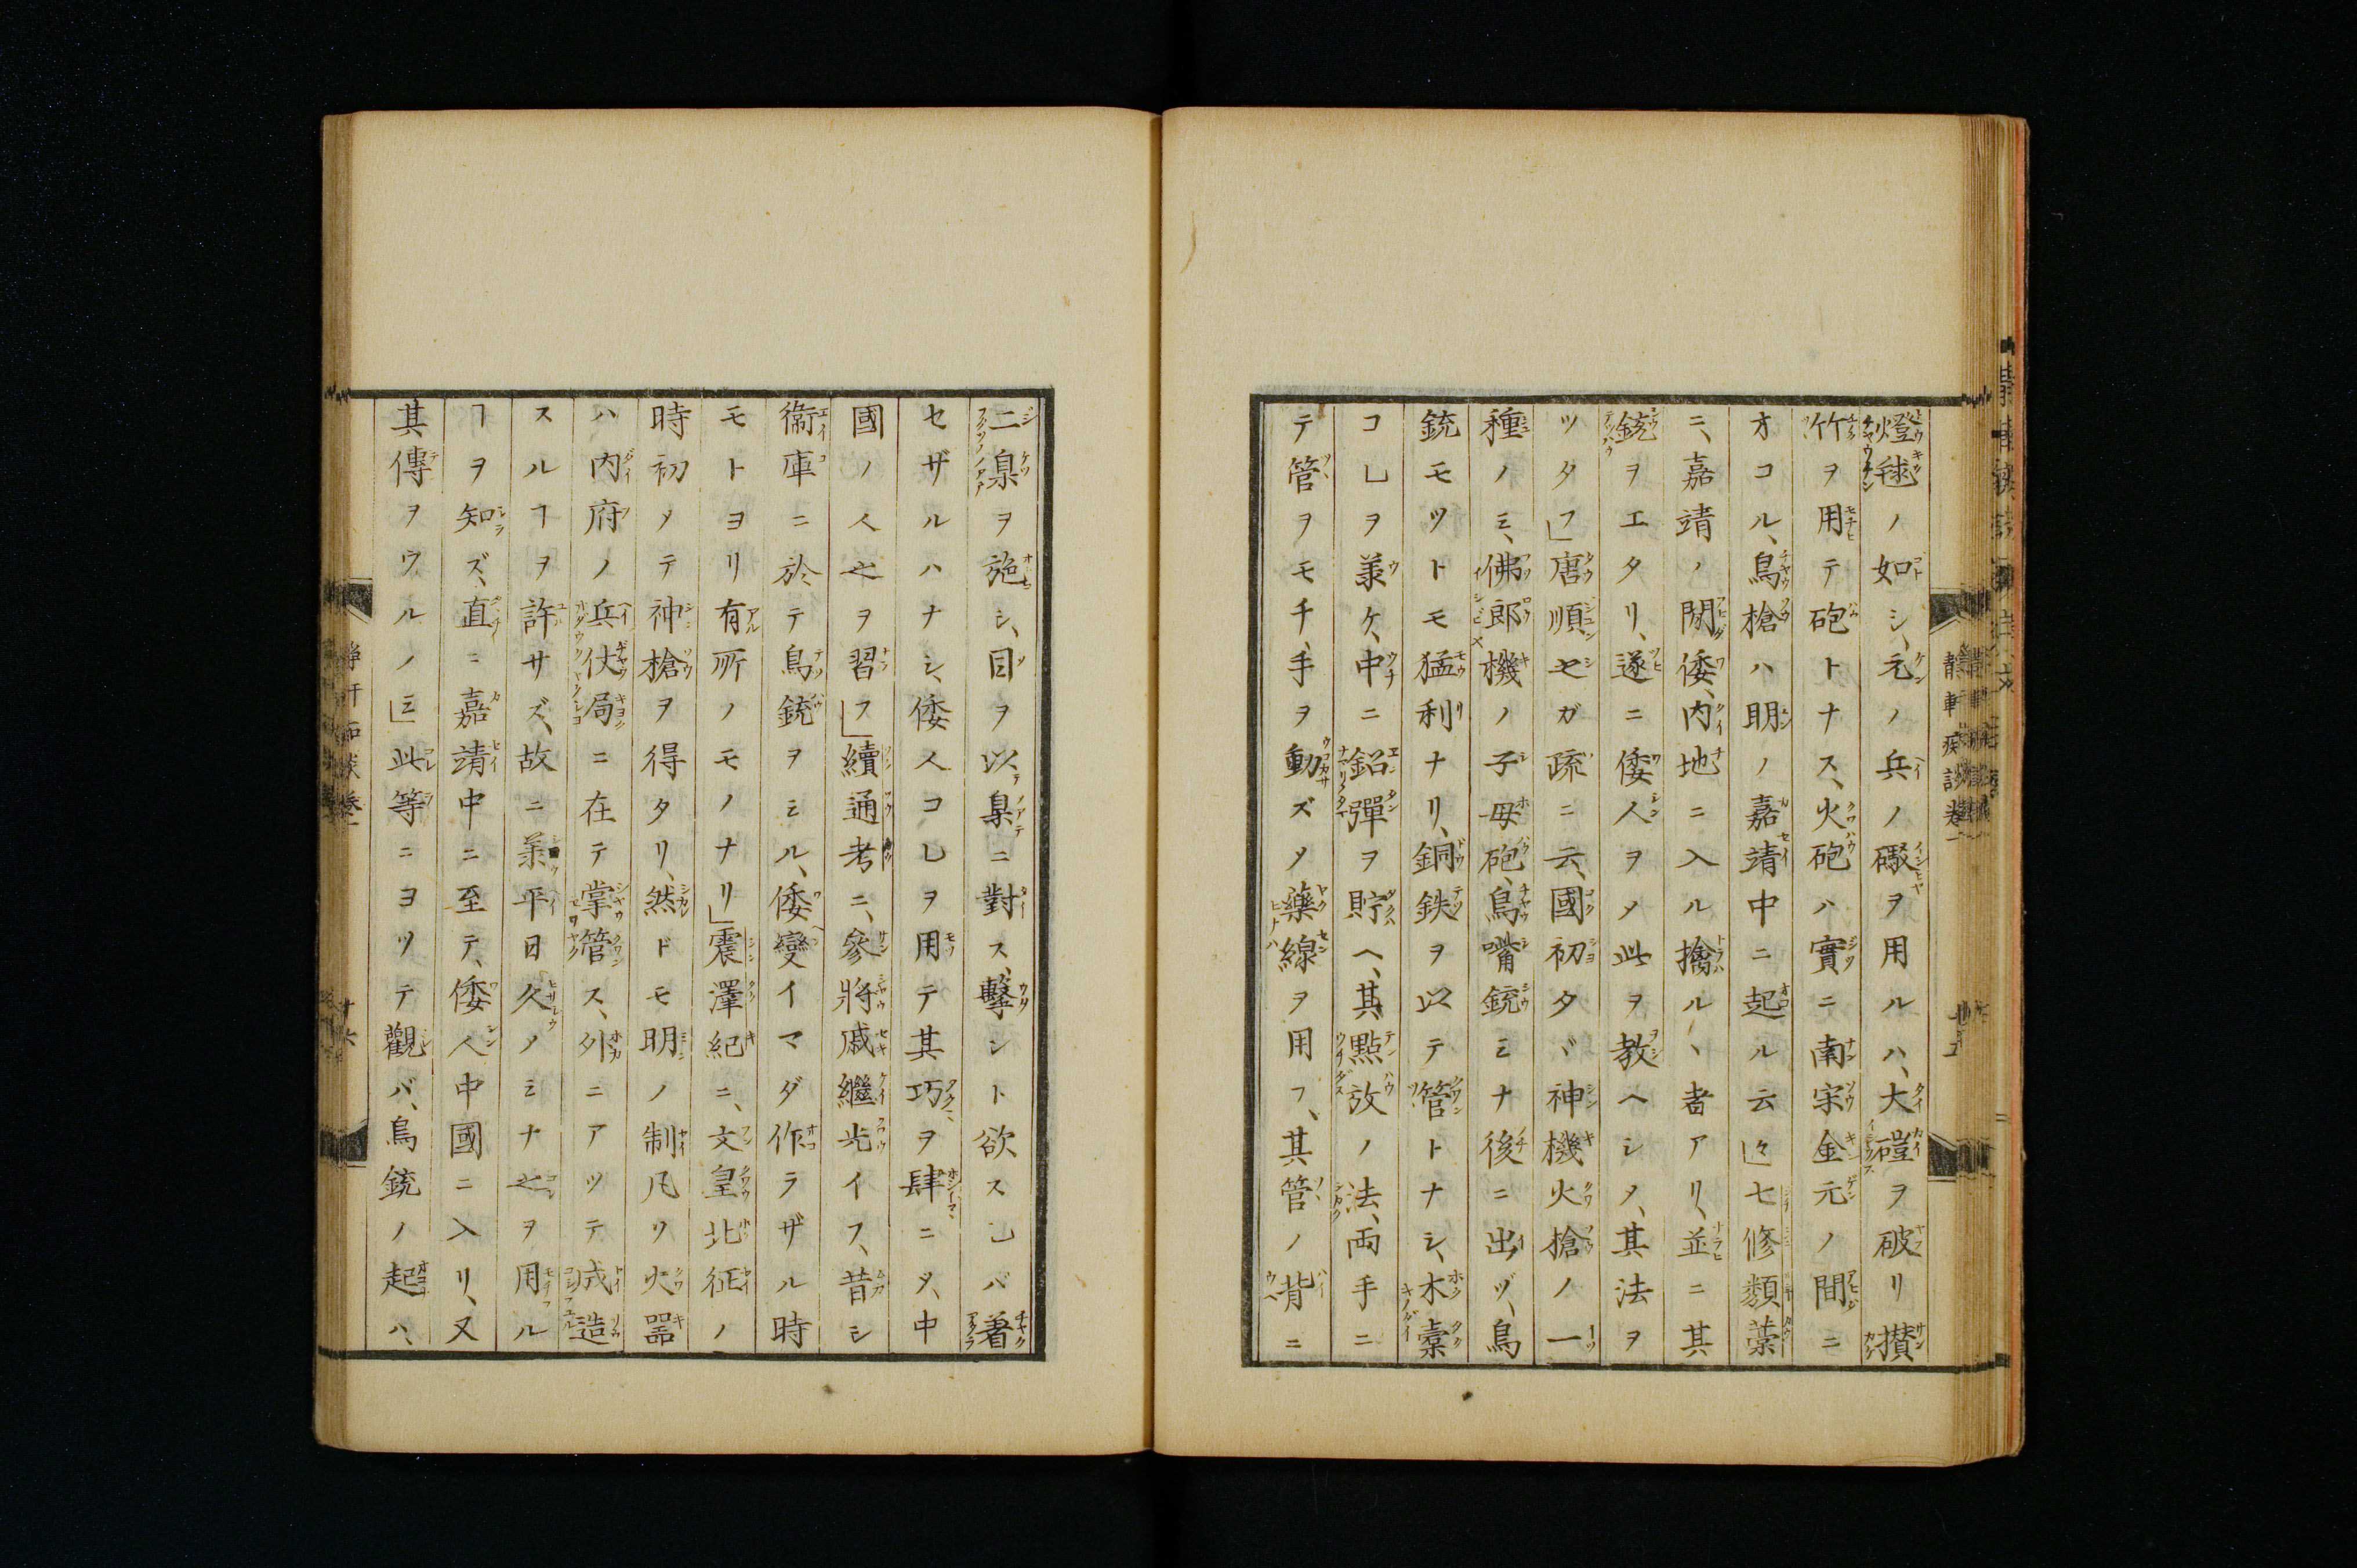 燈毬ノ如シ、元ノ兵ノ礮ヲ用ルハ、大磑ヲ破リ攅
竹ヲ用テ砲トナス、火砲ハ實ニ南宋金元ノ間ニ
オコル、鳥槍ハ明ノ嘉靖中ニ起ル云々」七修類藁
ニ、嘉靖ノ間倭、内地ニ入ル擒ルヽ者アリ、並ニ其
銃ヲエタリ、遂ニ倭人ヲメ此ヲ教ヘシメ、其法ヲ
ツタフ」唐順之ガ疏ニ云、國初タヾ神機火槍ノ一
種ノミ、佛郎機ノ子母砲、鳥嘴銃ミナ後ニ出ヅ、鳥
銃モツトモ猛利ナリ、銅鉄ヲ以テ管トナシ、木槖
コレヲ羕ケ、中ニ鉛彈ヲ貯ヘ、其點放ノ法、両手ニ
テ管ヲモチ、手ヲ動ズメ藥線ヲ用フ、其管ノ背ニ
静軒痴談卷一
二臬ヲ施シ、目ヲ以臬ニ對ス、擊ント欲スレバ着
セザルハナシ、倭人コレヲ用テ其巧ヲ肆ニメ、中
國ノ人之ヲ習フ」續通考ニ、參將戚繼光イフ、昔シ
衞庫ニ於テ鳥銃ヲミル、倭變イマダ作ラザル時
モトヨリ有所ノモノナリ」震澤紀ニ、文皇北征ノ
時初メテ神槍ヲ得タリ、然ドモ明ノ制凡ソ火噐
ハ、内府ノ兵仗局ニ在テ掌管ス、外ニアツテ成造
スルヿヲ許サズ、故ニ羕平日久メミナ之ヲ用ル
ヿヲ知ズ、直ニ嘉靖中ニ至テ、倭人中國ニ入リ、又
其傳ヲウルノミ」此等ニヨツテ觀バ、鳥銃ノ起ハ、